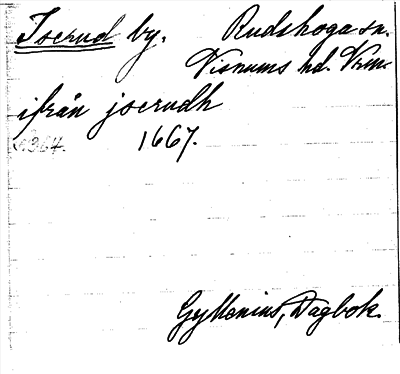 Joerud by. Rudskoga sn.
Visnums hd. Vrm.
ifrån joerudh
1667.
Gyllenius, Dagbok.